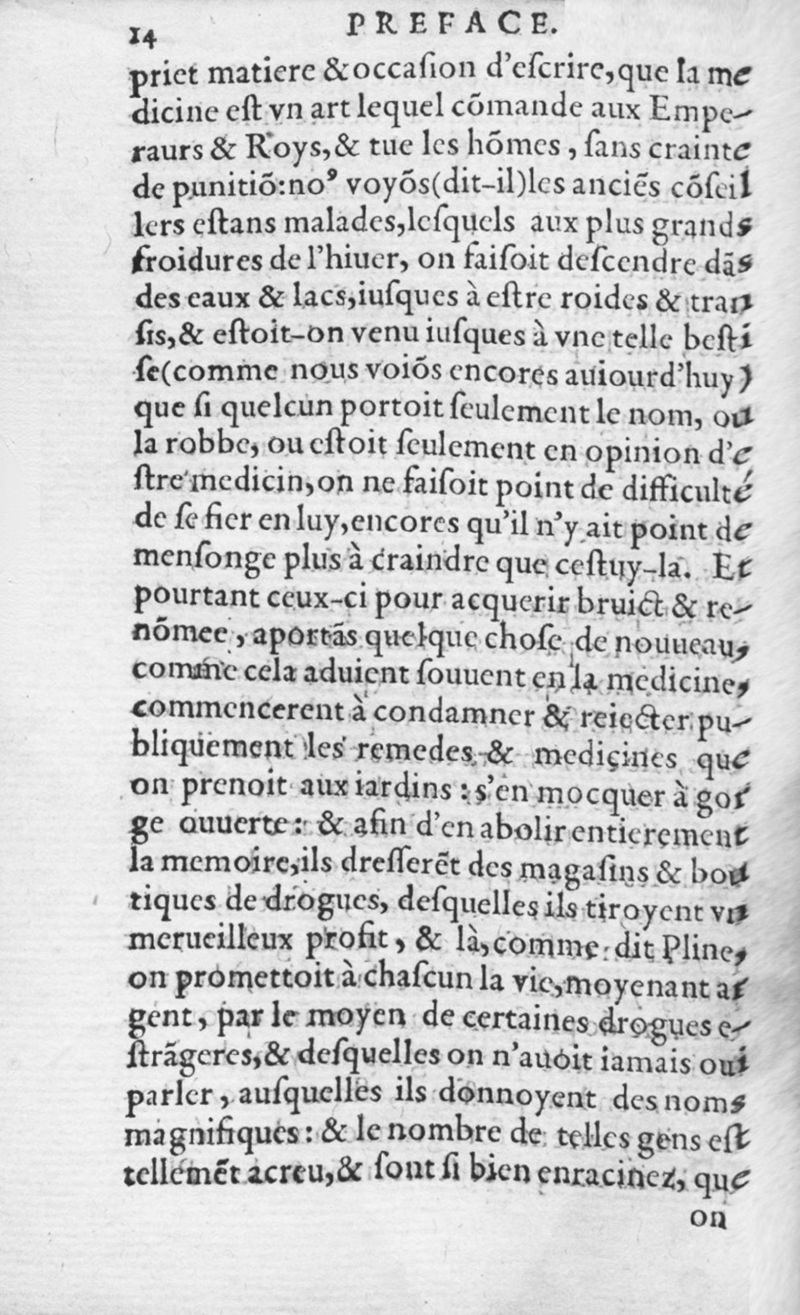 14 PREFACE.
priet matiere & occaſion d'eſcrire, que la me
dicine eſt vn art lequel cõmande aux Empe-
raurs & Roys, & tue les hõmes, ſans crainte
de punitiõ: noꝰ voyõs (dit-il) les anciẽs cõſeil
lers eſtans malades, leſquels aux plus grands
froidures de l'hiuer, on faiſoit deſcendre dãs
des eaux & lacs, iuſques à eſtre roides & tran
ſis, & eſtoit-on venu iuſques à vne telle beſti
ſe (comme nous voiõs encores auiourd'huy)
que ſi quelcun portoit ſeulement le nom, ou
la robbe, ou eſtoit ſeulement en opinion d'e
ſtre medicin, on ne faiſoit point de difficulté
de ſe fier en luy, encores qu'il n'y ait point de
menſonge plus à craindre que ceſtuy-la. Et
pourtant ceux-ci pour acquerir bruict & re-
nõmee, aportãs quelque choſe de nouueau,
comme cela aduient ſouuent en la medicine,
commencerent à condamner & reiecter pu-
bliquement les remedes & medicines que
on prenoit aux iardins: s'en mocquer à gor
ge ouuerte: & afin d'en abolir entierement
la memoire, ils dreſſerẽt des magaſins & bou
tiques de drogues, deſquelles ils tiroyent vn
merueilleux profit, & là, comme dit Pline,
on promettoit à chaſcun la vie, moyenant ar
gent, par le moyen de certaines drogues e-
ſtrãgeres, & deſquelles on n'auoit iamais oui
parler, auſquelles ils donnoyent des noms
magnifiques: & le nombre de telles gens eſt
tellemẽt acreu, & ſont ſi bien enracinez, que
on